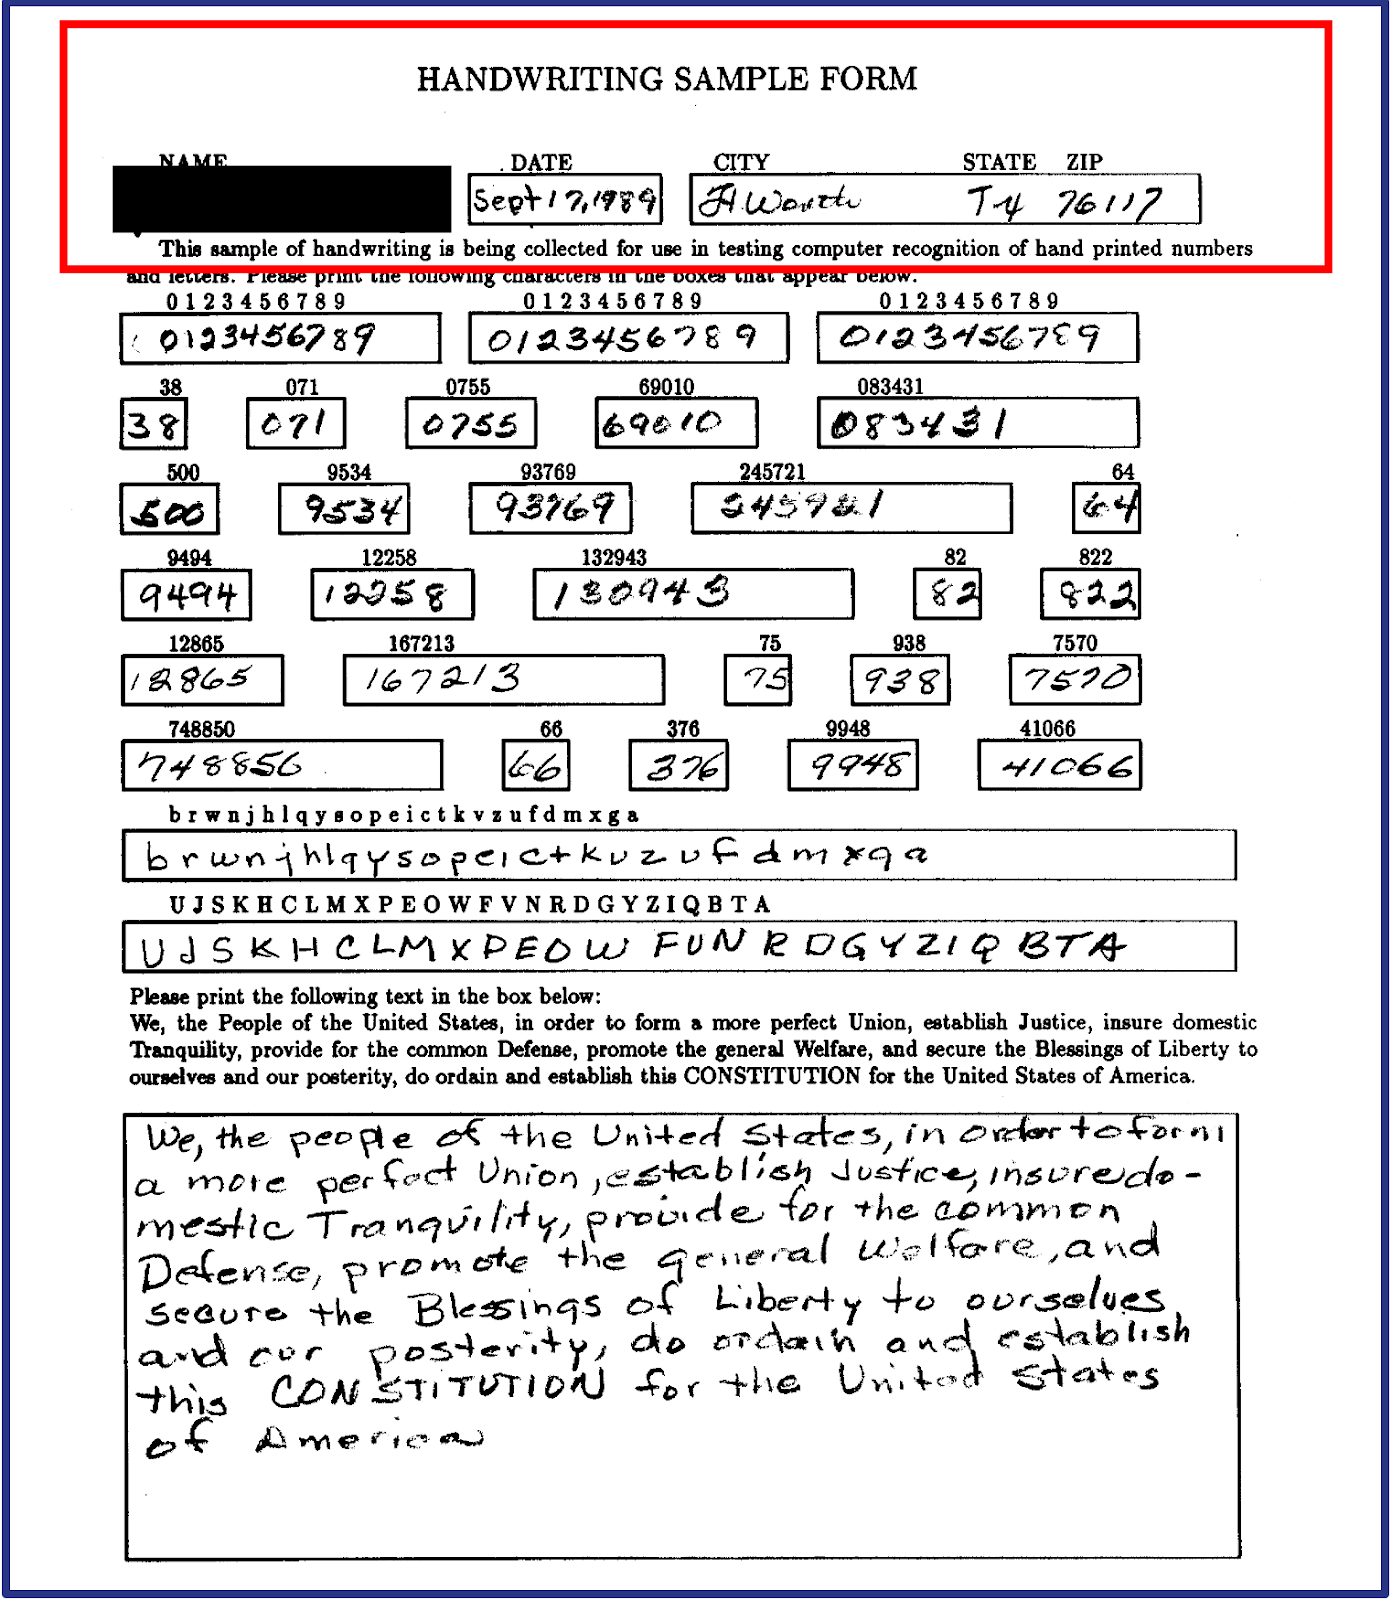 HANDWRITING SAMPLE FORM
NAME DATE CITY STATE ZIP
Sept 17, 1989 Ft. Worth TX 76117
This sample of handwriting is being collected for use in testing computer recognition of hand printed numbers
and letters. Please print the following characters in the boxes that appear below.
0 1 2 3 4 5 6 7 8 9 0 1 2 3 4 5 6 7 8 9 0 1 2 3 4 5 6 7 8 9
0123456789 0123456789 0123456789
38 071 0755 69010 083431
38 071 0755 69010 083431
500 9534 93769 245721 64
500 9534 93769 245721 64
9494 12258 132943 82 822
9494 12258 130943 82 822
12865 167213 75 938 7570
12865 167213 75 938 7570
748850 66 376 9948 41066
748850 66 376 9948 41066
b r w n j h l q y s o p e i c t k v z u f d m x g a
b r w n j h l q y s o p e i c t k v z u f d m x g a
U J S K H C L M X P E O W F V N R D G Y Z I Q B T A
U J S K H C L M X P E O W F V N R D G Y Z I Q B T A
Please print the following text in the box below:
We, the People of the United States, in order to form a more perfect Union, establish Justice, insure domestic
Tranquility, provide for the common Defense, promote the general Welfare, and secure the Blessings of Liberty to
ourselves and our posterity, do ordain and establish this CONSTITUTION for the United States of America.
We, the people of the United States, in order to form
a more perfect Union, establish Justice, insure do-
mestic Tranquility, provide for the common
Defense, promote the general Welfare, and
secure the Blessings of Liberty to ourselves
and our posterity, do ordain and establish
this CONSTITUTION for the United States
of America